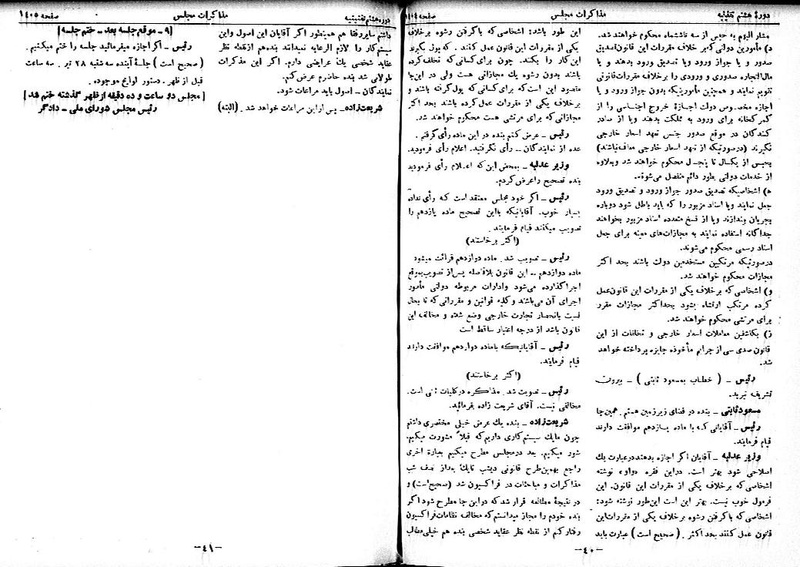 دورهٔ هشتم تقنینیه
مذاکرات مجلس
صفحه ۱۴۰۴
مشار الیهم به حبس از سه تا ششماه محکوم خواهند شد.
د) مأمورین دولتی که بر خلاف مقررات این قانون تصدیق
صدور و یا جواز ورود ویا تصدیق ورود بدهند و یا
مال‌التجاره صدوری و ورودی را برخلاف مقررات قانونی
تقویم نمایند و همچنین مأمورینیکه بدون جواز ورود و یا
اجازه مخصوص دولت اجازهٔ خروج اجناسی را از
گمرکخانه برای ورود به مملکت بدهند ویا از صادر
کنندگان در موقع صدور جنس تعهد اسعار خارجی
نگیرند (درصورتیکه از تعهد اسعار خارجی معاف نباشند)
بحبس از یکسال تا پنجسال محکوم خواهند شد وبعلاوه
از خدمات دولتی بطور دائم منفصل می‌شوند.
ه) اشخاصیکه تصدیق صدور جواز ورود و تصدیق ورود
جعل نمایند ویا اسناد مزبور را که باید باطل شود دوباره
بجریان بیندازند ویا از نسخ متعدده اسناد مزبور بخواهند
جداگانه استفاده نمایند به مجازات‌های معینه برای جعل
اسناد رسمی محکوم می‌شوند.
درصورتیکه مرتکبین مستخدمین دولت باشند بحد اکثر
مجازات محکوم خواهند شد.
و) اشخاصی که برخلاف یکی از مقررات این قانون عمل
کرده مرتکب ارتشاء بشود بحداکثر مجازات مقرر
برای مرتشی محکوم خواهند شد.
ز) بکاشفین معاملات اسعار خارجی و تخلفات از این
قانون صدی سی از جرایم مأخوذه جایزه پرداخته خواهد
شد.
رئیس – (خطاب بمسعود ثابتی) – بیرون
تشریف ببرید.
مسعود ثابتی – بنده در فضای زیرزمین هستم. همین‌جا
رئیس – آقایانی که با ماده یازدهم موافقت دارند
قیام فرمایند.
وزیر عدلیه – آقایان اگر اجازه بدهند در عبارت یک
اصلاحی شود بهتر است. در این فقره «واو» نوشته
اشخاصی که بر خلاف یکی از مقررات این قانون. این
فرمول خوب نیست. بهتر این است این‌طور نوشته شود:
اشخاصی که با گرفتن رشوه بر خلاف یکی از مقررات این
قانون عمل کنند بحد اکثر. (صحیح است) عبارت باید
این طور باشد: اشخاصی که با گرفتن رشوه بر خلاف
یکی از مقررات این قانون عمل کنند. که پول بگیرند
این کار را بکنند. چون برای کسانی که تخلف کرده
باشند بدون رشوه یک مجازاتی هست ولی در این‌جا
مقصود این است که برای کسانی که پول گرفته باشند و
برخلاف یکی از مقررات عمل کرده باشند بحد اکثر
مجازاتی که برای مرتشی هست محکوم خواهند شد.
رئیس – عرض کنم بنده در این ماده رأی گرفتم.
عده از نمایندگان – رأی نگرفتید. اعلام رأی فرمودید.
وزیر عدلیه – بمحض این که اعلام رأی فرمودید
بنده تصحیح را عرض کردم.
رئیس – اگر خود مجلس معتقد است که رأی نداده
بسیار خوب. آقایانیکه با این تصحیح ماده یازدهم را
تصویب میکنند قیام فرمایند.
(اکثر برخاستند)
رئیس – تصویب شد. ماده دوازدهم قرائت میشود
ماده دوازدهم – این قانون بلافاصله پس از تصویب بموقع
اجرا گذارده می‌شود وادارات مربوطه دولتی مأمور
اجرای آن می‌باشند وکلیه قوانین و مقرراتی که تا بحال
نسبت بانحصار تجارت خارجی وضع شده و مخالف این
قانون باشد از درجه اعتبار ساقط است
رئیس – آقایانیکه با ماده دوازدهم موافقت دارند
قیام فرمایند.
(اکثر برخاستند)
رئیس – تصویب شد. مذاکره در کلیات ثانی است.
مخالفی نیست. آقای شریعت زاده بفرمائید.
شریعت‌زاده – بنده یک عرض خیلی مختصری داشتم
چون ما یک سیستم کاری داریم که قبلاً مشورت میکنیم.
شور میکنیم. بعد در مجلس مطرح میکنیم بعبارة اخری
راجع بهمین طرح قانونی دیشب تا یک بعد از نصف شب
مذاکرات و مباحثات در فراکسیون شد (صحیح است) و
در نتیجهٔ مطالعه قرار شد که در این جا مطرح شود اگر
بنده خودم را مجاز میدانستم که مخالف نظامات فراکسیون
رفتار کنم از نقطه نظر عقاید شخصی بنده هم خیلی مطالب
–۴۰–
دورهٔ هشتم تقنینیه
مذاکرات مجلس
صفحه ۱۴۰۵
داشتم سایر رفقا هم همینطور اگر آقایان این اصول و این
سیستم کار را لازم الرعایه نمیدانند بنده هم از نقطه نظر
عقاید شخصی یک عرایضی دارم. اگر این مذاکرات
طولانی شد بنده حاضرم عرض کنم.
نمایندگان – اصول باید مراعات شود.
شریعت‌زاده – پس از این مراعات خواهد شد. (البته)
[۹ – موقع جلسه بعد – ختم جلسه]
رئیس – اگر اجازه میفرمائید جلسه را ختم میکنیم.
(صحیح است) جلسهٔ آینده سه شنبه ۲۸ تیر. سه ساعت
قبل از ظهر. دستور لوایح موجوده.
[مجلس دو ساعت و ده دقیقه از ظهر گذشته ختم شد]
رئیس مجلس شورای ملی – دادگر
–۴۱–